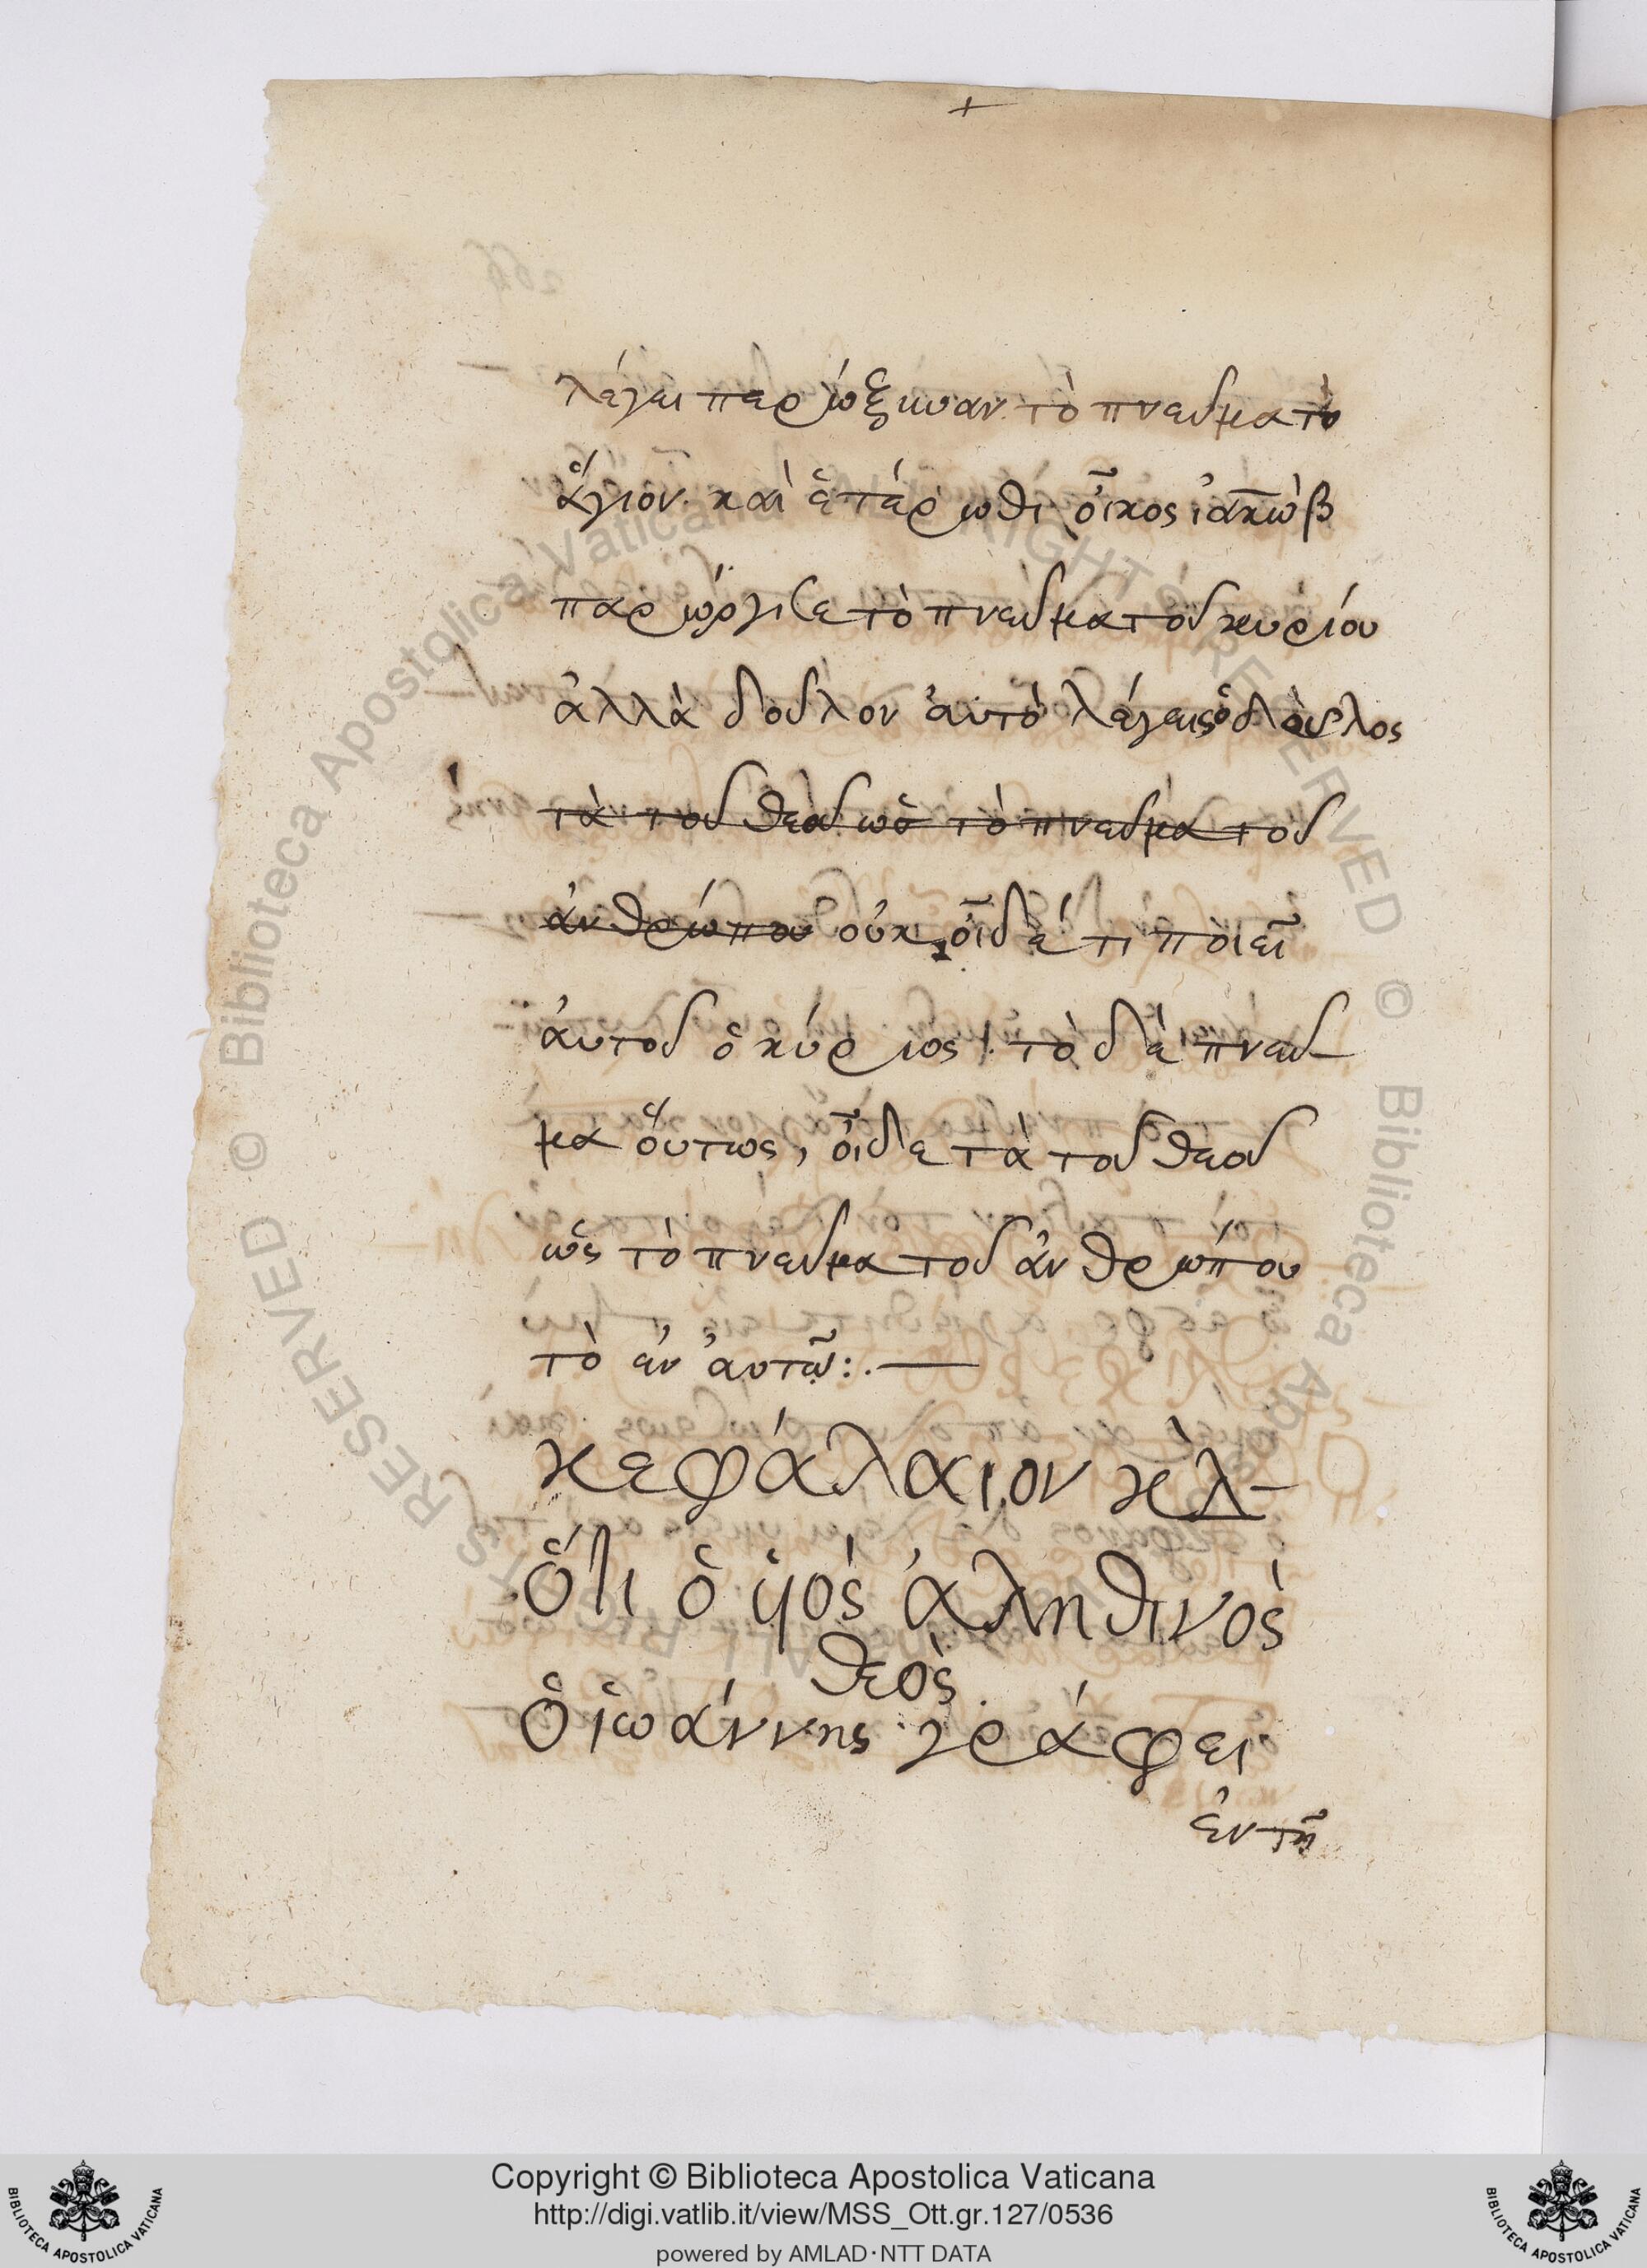 +
λέγει παρώξυναν τὸ πνεῦμα τὸ
ἅγιον. καὶ ἑτέρωθι οἶκος ἰακὼβ
παρώργισε τὸ πνεῦμα τοῦ κυρίου
ἀλλὰ δοῦλον ἀυτὸ λέγεις ὁ δοῦλος
τὰ τοῦ θεοῦ ὡς τὸ πνεῦμα τοῦ
ἀνθρώπου οὐκ οἶδέ τι ποιεῖ
ἀυτοῦ ὁ κύριος· τὸ δὲ πνεῦ-
μα ὅυτως, οἶδε τὰ τοῦ θεοῦ
ὡς τὸ πνεῦμα τοῦ ἀνθρώπου
τὸ ἐν ἀυτῷ:.—
κεφάλαιον κλ-
Ὅτι ὁ ὑιὸς ἀληθινὸς
θεὸς.
Ὁ ἰωάννης γράφει
ἐν τῇ
Copyright © Biblioteca Apostolica Vaticana
http://digi.vatlib.it/view/MSS_Ott.gr.127/0536
powered by AMLAD·NTT DATA
BIBLIOTECA APOSTOLICA VATICANA
BIBLIOTECA APOSTOLICA VATICANA
© Biblioteca Apostolica Vaticana ALL RIGHTS RESERVED
© Biblioteca Apostolica Vaticana ALL RIGHTS RESERVED